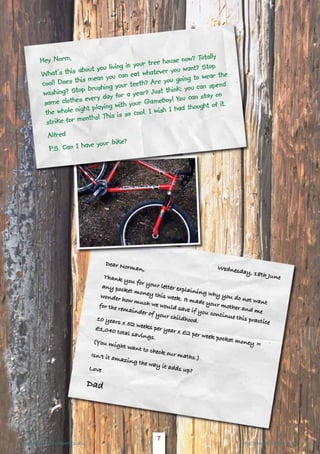 Hey Norm,
What's this about you living in your tree house now? Totally
cool! Does this mean you can eat whatever you want? Stop
washing? Stop brushing your teeth? Are you going to wear the
same clothes every day for a year? Just think; you can spend
the whole night playing with your Gameboy! You can stay on
strike for months! This is so cool. I wish I had thought of it.
Alfred
P.S. Can I have your bike?
Wednesday, 18th June
Dear Norman,
Thank you for your letter explaining why you do not want
any pocket money this week. It made your mother and me
wonder how much we would save if you continue this practice
for the remainder of your childhood.
10 years x 52 weeks per year x £2 per week pocket money =
£1,040 total savings.
(You might want to check our maths.)
Isn't it amazing the way it adds up?
Love
Dad
7